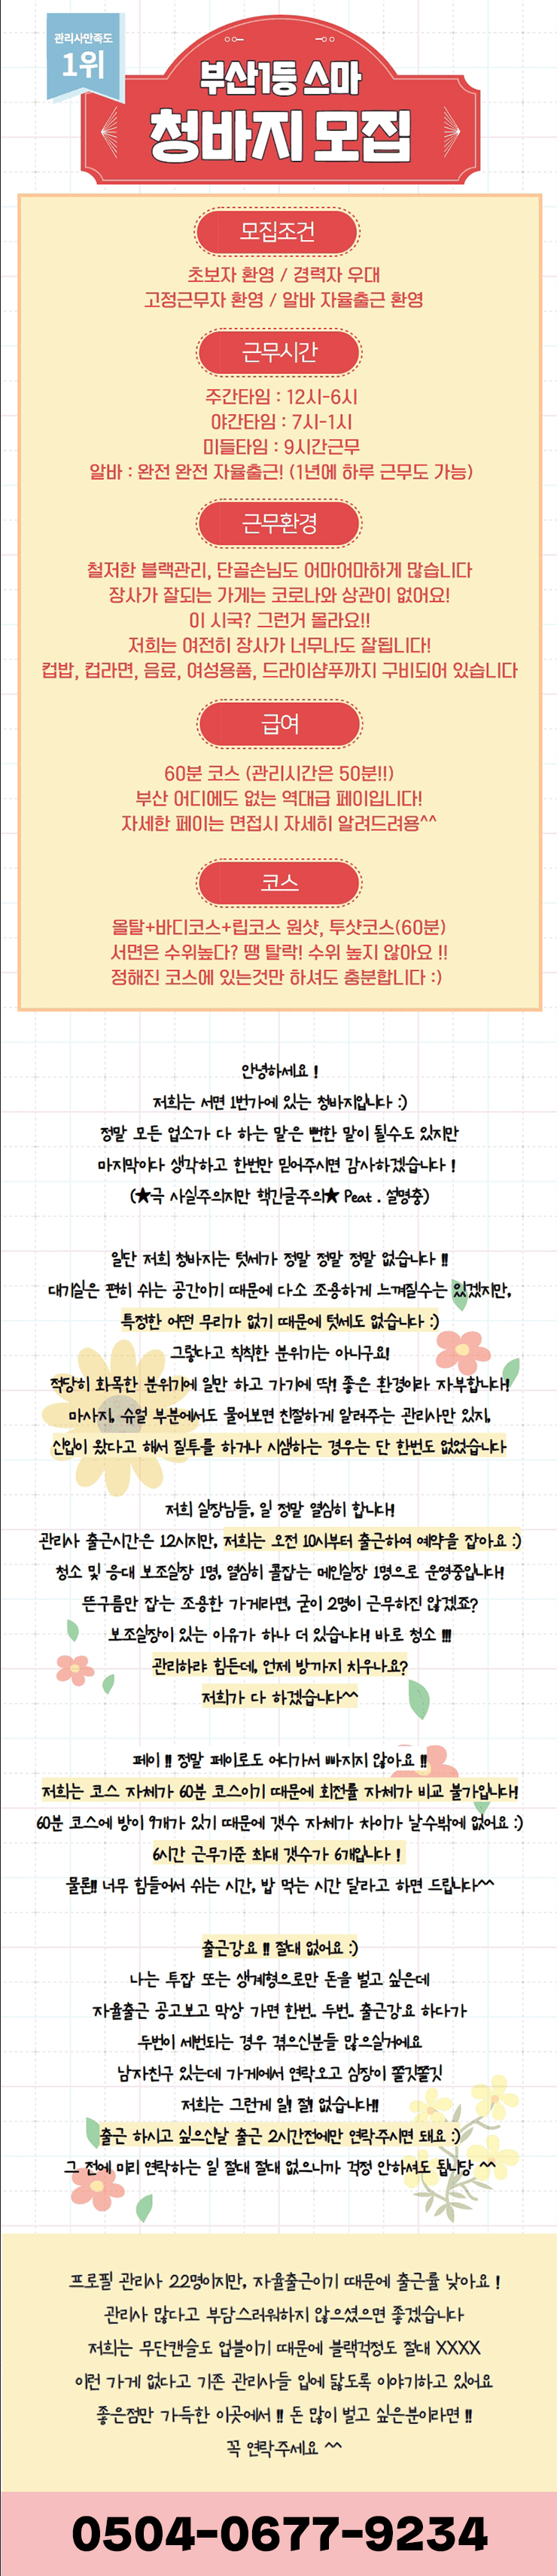 관리사만족도
1위
부산1등 스마
청바지 모집
모집조건
초보자 환영 / 경력자 우대
고정근무자 환영 / 알바 자율출근 환영
근무시간
주간타임 : 12시-6시
야간타임 : 7시-1시
미들타임 : 9시간근무
알바 : 완전 완전 자율출근! (1년에 하루 근무도 가능)
근무환경
철저한 블랙관리, 단골손님도 어마어마하게 많습니다
장사가 잘되는 가게는 코로나와 상관이 없어요!
이 시국? 그런거 몰라요!!
저희는 여전히 장사가 너무나도 잘됩니다!
컵밥, 컵라면, 음료, 여성용품, 드라이샴푸까지 구비되어 있습니다
급여
60분 코스 (관리시간은 50분!!)
부산 어디에도 없는 역대급 페이입니다!
자세한 페이는 면접시 자세히 알려드려용^^
코스
올탈+바디코스+립코스 원샷, 투샷코스(60분)
서면은 수위높다? 땡 탈락! 수위 높지 않아요 !!
정해진 코스에 있는것만 하셔도 충분합니다 :)
안녕하세요 !
저희는 서면 1번가에 있는 청바지입니다 :)
정말 모든 업소가 다 하는 말은 뻔한 말이 될수도 있지만
마지막이다 생각하고 한번만 믿어주시면 감사하겠습니다 !
(★극 사실주의지만 핵긴글주의★ Peat . 설명충)
일단 저희 청바지는 텃세가 정말 정말 정말 없습니다 !!
대기실은 편히 쉬는 공간이기 때문에 다소 조용하게 느껴질수는 있겠지만,
특정한 어떤 무리가 없기 때문에 텃세도 없습니다 :)
그렇다고 칙칙한 분위기는 아니구요!
적당히 화목한 분위기에 일만 하고 가기에 딱! 좋은 환경이라 자부합니다!
마사지, 슈얼 부분에서도 물어보면 친절하게 알려주는 관리사만 있지,
신입이 왔다고 해서 질투를 하거나 시샘하는 경우는 단 한번도 없었습니다
저희 실장님들, 일 정말 열심히 합니다!
관리사 출근시간은 12시지만, 저희는 오전 10시부터 출근하여 예약을 잡아요 :)
청소 및 응대 보조실장 1명, 열심히 콜잡는 메인실장 1명으로 운영중입니다!
뜬구름만 잡는 조용한 가게라면, 굳이 2명이 근무하진 않겠죠?
보조실장이 있는 이유가 하나 더 있습니다! 바로 청소 !!!
관리하랴 힘든데, 언제 방까지 치우나요?
저희가 다 하겠습니다^^
페이 !! 정말 페이로도 어디가서 빠지지 않아요 !!
저희는 코스 자체가 60분 코스이기 때문에 회전률 자체가 비교 불가입니다!
60분 코스에 방이 9개가 있기 때문에 갯수 자체가 차이가 날수밖에 없어요 :)
6시간 근무기준 최대 갯수가 6개입니다 !
물론!! 너무 힘들어서 쉬는 시간, 밥 먹는 시간 달라고 하면 드립니다^^
출근강요 !! 절대 없어요 :)
나는 투잡 또는 생계형으로만 돈을 벌고 싶은데
자율출근 공고보고 막상 가면 한번.. 두번.. 출근강요 하다가
두번이 세번되는 경우 겪으신분들 많으실거에요
남자친구 있는데 가게에서 연락오고 심장이 쫄깃쫄깃
저희는 그런게 일! 절! 없습니다!!
출근 하시고 싶으신날 출근 2시간전에만 연락주시면 돼요 :)
그 전에 미리 연락하는 일 절대 절대 없으니까 걱정 안하셔도 됩니당 ^^
프로필 관리사 22명이지만, 자율출근이기 때문에 출근률 낮아요 !
관리사 많다고 부담스러워하지 않으셨으면 좋겠습니다
저희는 무단캔슬도 업블이기 때문에 블랙걱정도 절대 XXXX
이런 가게 없다고 기존 관리사들 입에 닳도록 이야기하고 있어요
좋은점만 가득한 이곳에서 !! 돈 많이 벌고 싶은분이라면 !!
꼭 연락주세요 ^^
0504-0677-9234